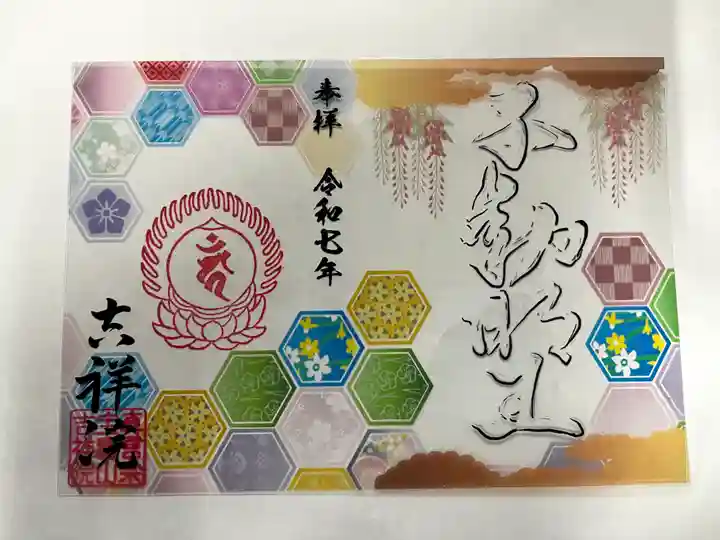 不動明王
奉拝 令和七年
吉祥院